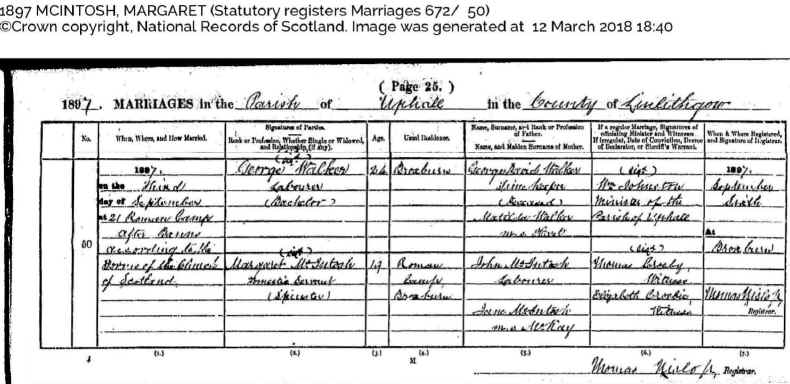 1897 MCINTOSH, MARGARET (Statutory registers Marriages 672/ 50)
©Crown copyright, National Records of Scotland. Image was generated at 12 March 2018 18:40
( Page 25. )
1897. MARRIAGES in the Parish of Uphall in the County of Linlithgow
No.
When, Where, and How Married.
Signatures of Parties.
Rank or Profession, Whether Single or Widowed, and Relationship (if any).
Age.
Usual Residence.
Name, Surname, and Rank or Profession of Father.
Name, and Maiden Surname of Mother.
If a regular Marriage, Signatures of officiating Minister and Witnesses
If irregular, Date of Conviction, Decree of Declaration, or Sheriff's Warrant.
When & Where Registered, and Signature of Registrar.
50
1897.
on the Third
day of September
at 21 Roman Camp
After Banns
according to the
Forms of the Church
of Scotland
(sigd)
George Walker
Labourer
(Bachelor)
(sigd)
Margaret McIntosh
Domestic Servant
(Spinster)
24
19
Broxburn
Roman
Camp
Broxburn
George Walker
(Deceased)
Matilda Walker
m.s.
John McIntosh
Labourer
McIntosh
m.s. McKay
(sigd)
Wm Johnston
Minister of the
Parish of Uphall
(sigd)
Thomas
Witness
Elizabeth Brodie
Witness
1897.
September
At
Broxburn
Thomas
Registrar.
(1.) (2.) (3.) (4.) (5.) (6.) (7.)
M
Thomas Registrar.